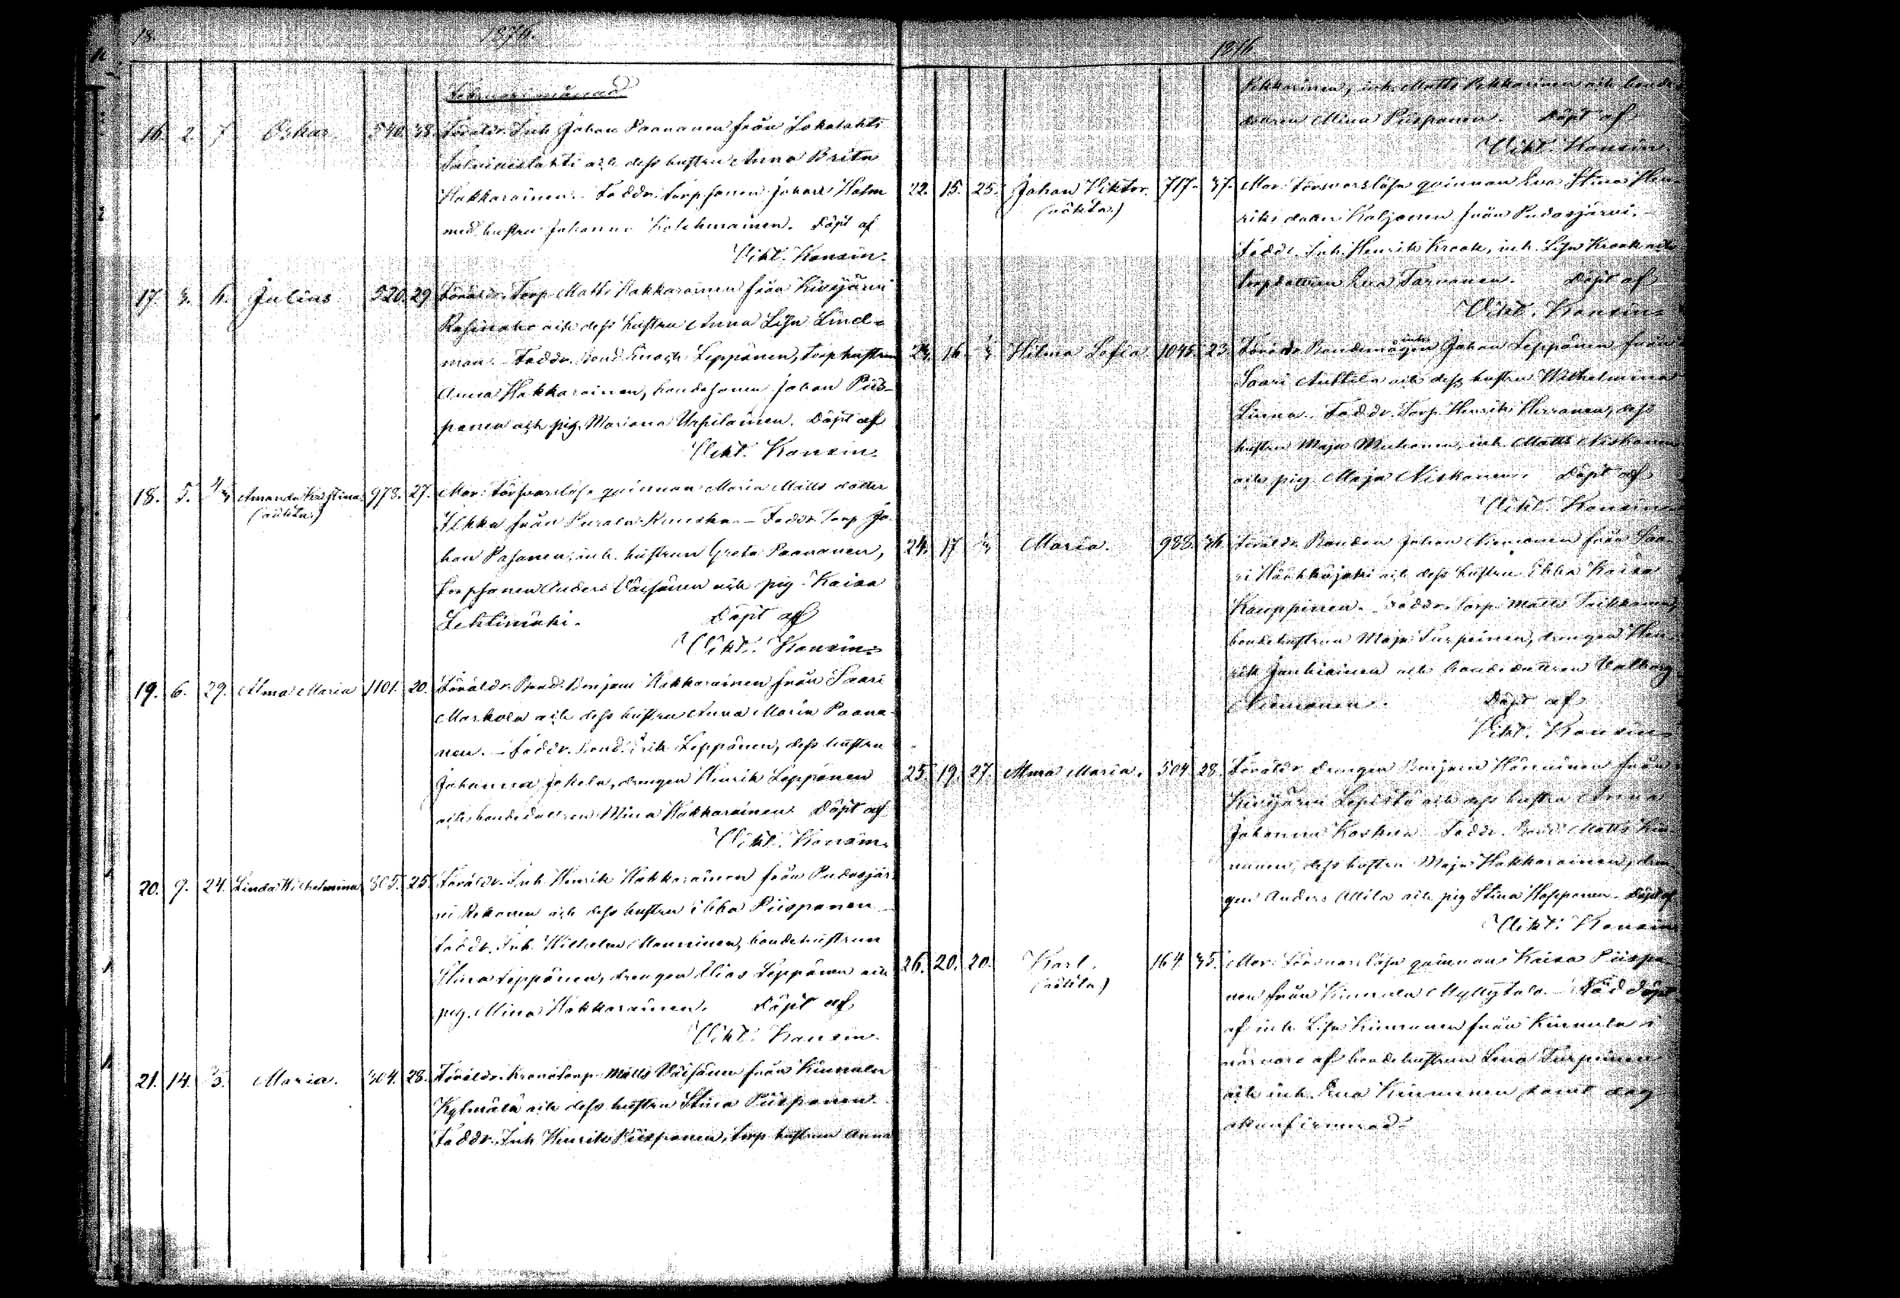 18. 1876.
Februari månad
16. 2. 7. Oskar. 540. 38. Föräldr. Inh. Johan Paananen från Lokalahti
och dess hustru Anna Brita
Hakkarainen. Faddr. torpsonen Johan Holm
med hustru Johanna Kolehmainen. Döpt af
Vikt. Konsin.
17. 3. 6. Julius. 520. 29. Föräldr. Torp. Matts Hakkarainen från Kivijärvi
Rasinaho och dess hustru Anna Lisa Lind-
man. Faddr. bond. Enoch Leppänen, torp.hustrun
Anna Hakkarainen, bondesonen Johan Piis-
panen och pig. Mariana Urpilainen. Döpt af
Vikt. Konsin.
18. 5. Amanda Kristina 973. 27. Mor: försvarslösa qvinnan Maria Matts dotter
(oäkta)
Ilkka från Purala Ruuska. Faddr. Torp. Jo-
han Pasanen, inh. hustrun Greta Paananen,
torpsonen Anders Väisänen och pig. Kaisa
Lehtimäki. Döpt af
Vikt. Konsin.
19. 6. 29. Alma Maria 1101. 20. Föräldr. Bond. Benjam Hakkarainen från Saari
Markola och dess hustru Anna Maria Paana-
nen. Faddr. bond. Erik Leppänen, dess hustru
Johanna Jokela, drengen Henrik Leppänen
och bondedottren Mina Hakkarainen. Döpt af
Vikt. Konsin.
20. 9. 24. Linda Wilhelmina 305. 25. Föräldr. Inh. Henrik Hakkarainen från Pudasjär-
vi Rekonen och dess hustru Ebba Piispanen
Faddr. Inh. Wilhelm Manninen, bondehustrun
Stina Leppänen, drengen Elias Leppänen och
pig. Mina Hakkarainen. Döpt af
Vikt. Konsin.
21. 14. Maria. 304. 28. Föräldr. Kronotorp. Matts Väisänen från Kinnula
Kylmälä och dess hustru Stina Piispanen.
Faddr. Inh. Henrik Piispanen, torp. hustrun Anna
1876
Pekkarinen, inh. Matts Pekkarinen och bonde-
dottren Mina Piispanen. Döpt af
Vikt. Konsin.
22. 15. 25. Johan Viktor. 717. 37. Mor: Försvarslösa qvinnan Eva Stina Hen-
(oäkta)
riks dotter Kaljonen från Pudasjärvi.
Faddr. Inh. Henrik Krook, inh. Lisa Krook och
torpdottren Eva Tarvanen. Döpt af
Vikt. Konsin.
23. 16. Hilma Sofia 1045. 23. Föräldr. Bondemågen Johan Leppänen från
Saari Anttila och dess hustru Wilhelmina
Linna. Faddr. Torp. Henrik Herranen, dess
hustru Maja Muhonen, inh. Matts Niskanen
och pig. Maja Niskanen. Döpt af
Vikt. Konsin.
24. 17 Maria. 988. 36. Föräldr. Bonden Johan Niemonen från Saa-
ri Häkkijoki och dess hustru Ebba Kaisa
Kauppinen. Faddr. Torp. Matts
bondehustrun Maja Turpeinen, drengen Hen-
rik Jauhiainen och bondedottren Valborg
Niemonen. Döpt af
Vikt. Konsin.
25. 19. 27. Alma Maria. 504. 28. Föräldr. drengen Benjam Hänninen från
Kivijärvi Lepistö och dess hustru Anna
Johanna Koskela. Faddr. Bond. Matts Kin-
nunen, dess hustru Maja Hakkarainen, dren-
gen Anders Attila och pig. Stina Hakkarainen. Döpt af
Vikt. Konsin
26. 20. 20. Karl. 164 35. Mor: Försvarslösa qvinnan Kaisa Piispa-
(oäkta)
nen från Kinnula Myllytalo. Nöddöpt
af inh. Lisa Kinnunen från Kinnula i
närvaro af bondehustrun Lena Turpeinen
och inh. Eva Kinnunen samt dog
okonfirmerad.